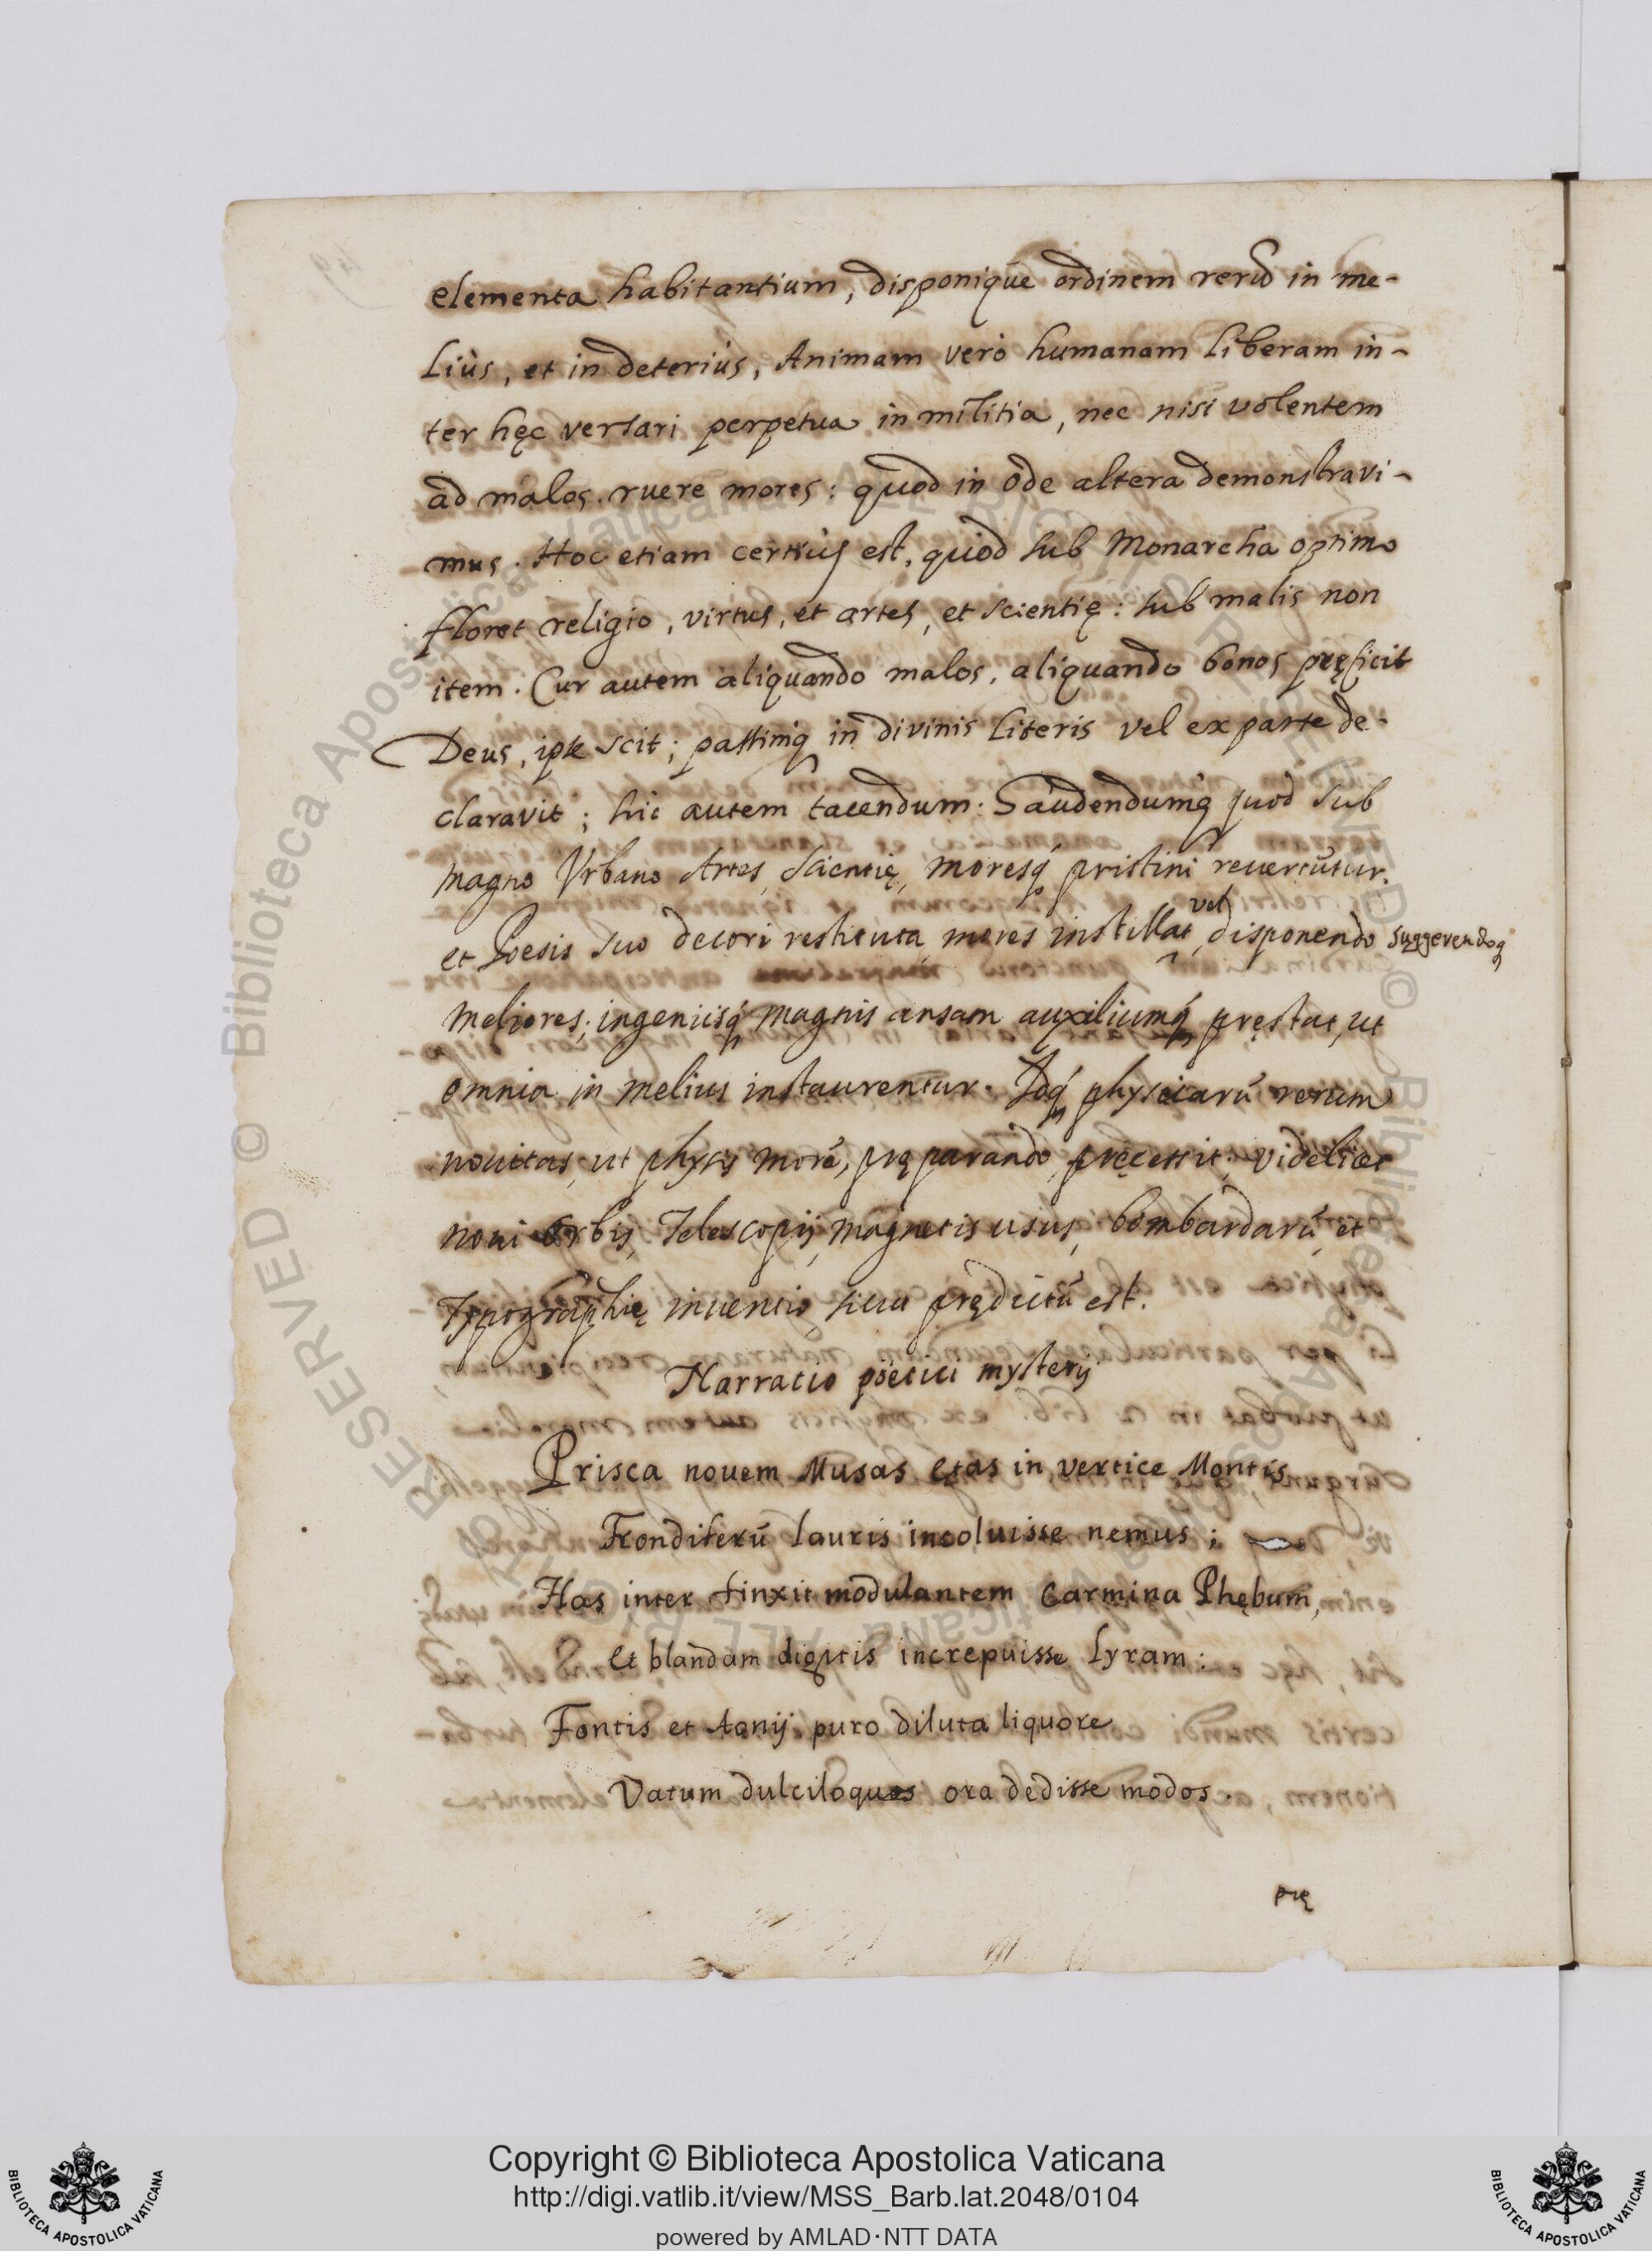 elementa habitantium, disponique ordinem rerū in me-
liùs, et in deteriùs, Animam verò humanam liberam in-
ter hęc versari perpetua in militia, nec nisi volentem
ad malos ruere mores: quod in ode altera demonstravi-
mus. Hoc etiam certiùs est, quòd sub Monarcha optimo
floret religio, virtus, et artes, et scientię: sub malis non
item. Cur autem aliquando malos, aliquando bonos pręficit
Deus, ipse scit; passimq́ in divinis literis vel ex parte de-
claravit; hic autem tacendum: Gaudendumq́ quod sub
magno Vrbano Artes, Scientię, moresq́ pristini revertūtur.
et Poesis suo decori restituta mores instillat, vel disponendo suggerendoq́
meliores; ingeniisq́ magnis ansam auxiliumq́ pręstat, ut
omnia in melius instaurentur. Idq́ physicarū rerum
nouitas, ut physis morē, pręparando pręcessit; videlicet
noui orbis, Telescopij, magnetis usus, bombardarū, et
Typographię inuentio, sicut prędictū est.
Narratio pöetici mysterij
Prisca nouem Musas ętas in vertice Montis
Frondiferū lauris incoluisse nemus;
Has inter finxit modulantem Carmina Phębum,
Et blandam digitis increpuisse lyram:
Fontis et Aonij puro diluta liquore
Vatum dulciloquos ora dedisse modos.
prę
Copyright © Biblioteca Apostolica Vaticana
http://digi.vatlib.it/view/MSS_Barb.lat.2048/0104
powered by AMLAD·NTT DATA